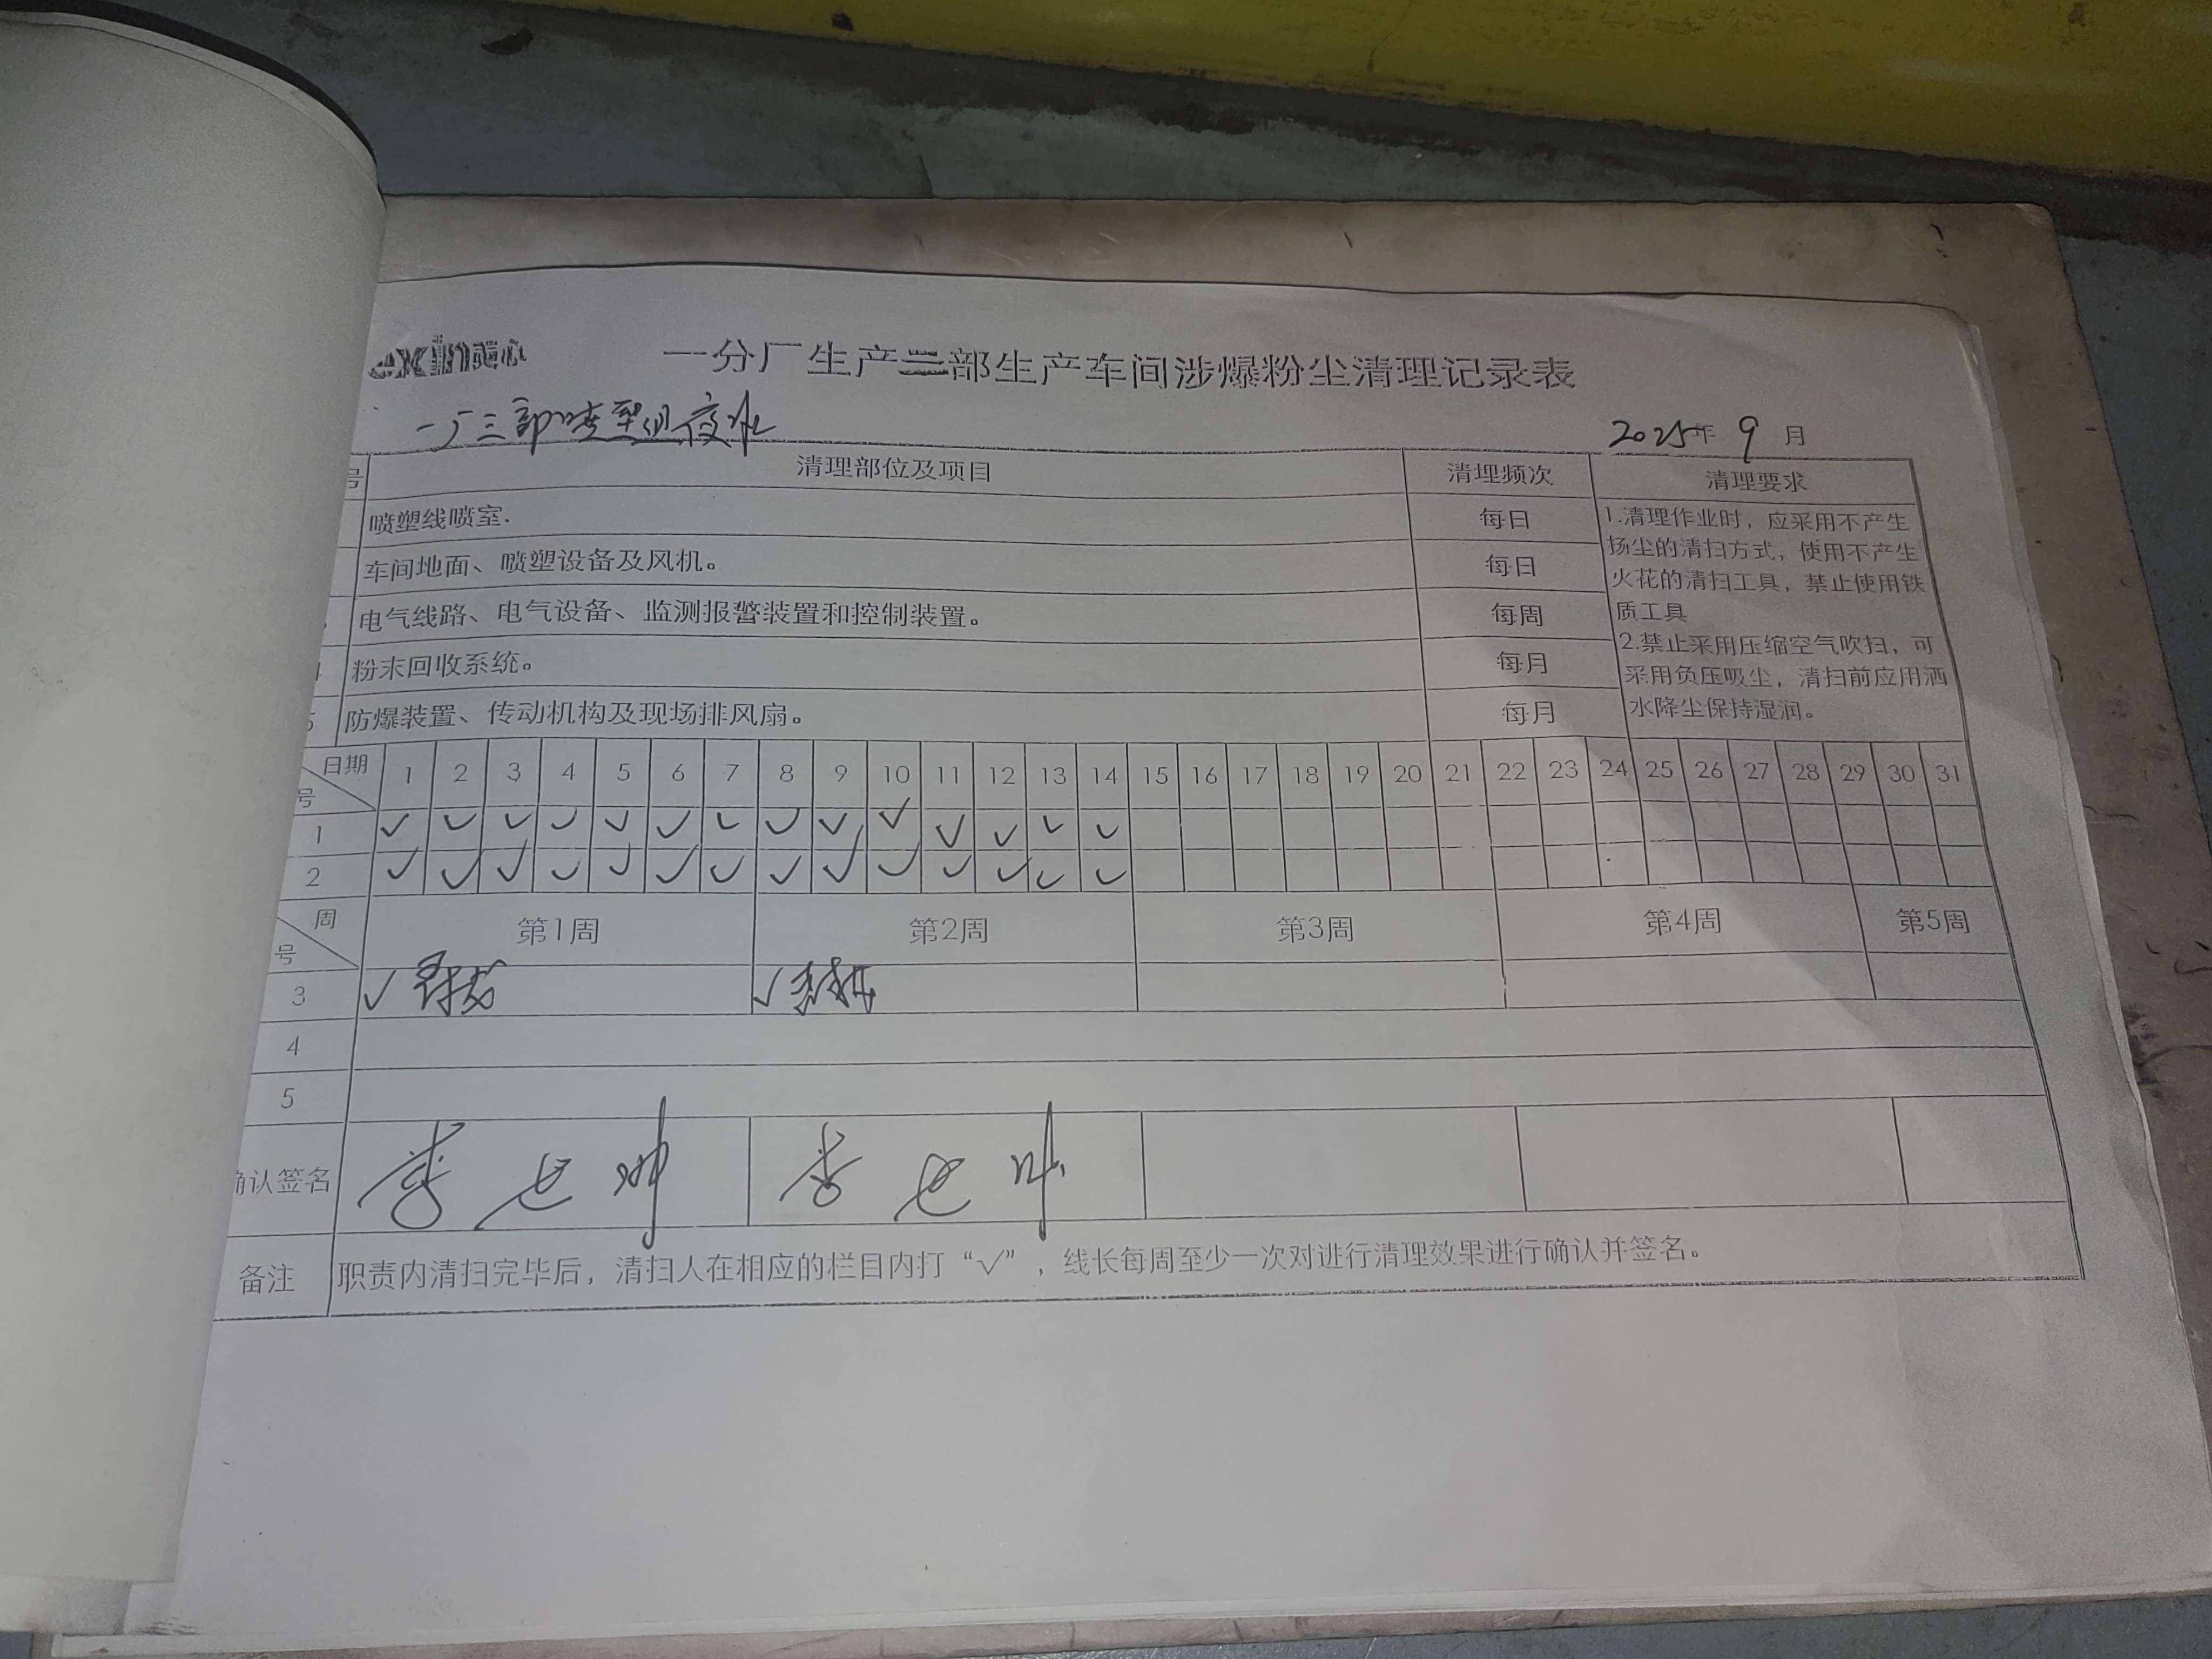 一分厂生产三部生产车间涉爆粉尘清理记录表
一厂三部喷塑组夜班
2025年 9 月
号 清理部位及项目 清理频次 清理要求
喷塑线喷室. 每日
车间地面、喷塑设备及风机。 每日
电气线路、电气设备、监测报警装置和控制装置。 每周
4 粉末回收系统。 每月
5 防爆装置、传动机构及现场排风扇。 每月
1.清理作业时，应采用不产生
扬尘的清扫方式，使用不产生
火花的清扫工具，禁止使用铁
质工具
2.禁止采用压缩空气吹扫，可
采用负压吸尘，清扫前应用洒
水降尘保持湿润。
日期 1 2 3 4 5 6 7 8 9 10 11 12 13 14 15 16 17 18 19 20 21 22 23 24 25 26 27 28 29 30 31
号
1 ✓ ✓ ✓ ✓ ✓ ✓ ✓ ✓ ✓ ✓ ✓ ✓ ✓ ✓
2 ✓ ✓ ✓ ✓ ✓ ✓ ✓ ✓ ✓ ✓ ✓ ✓ ✓ ✓
周 第1周 第2周 第3周 第4周 第5周
号
3 ✓ ✓
4
5
确认签名
备注 职责内清扫完毕后，清扫人在相应的栏目内打“✓”，线长每周至少一次对进行清理效果进行确认并签名。